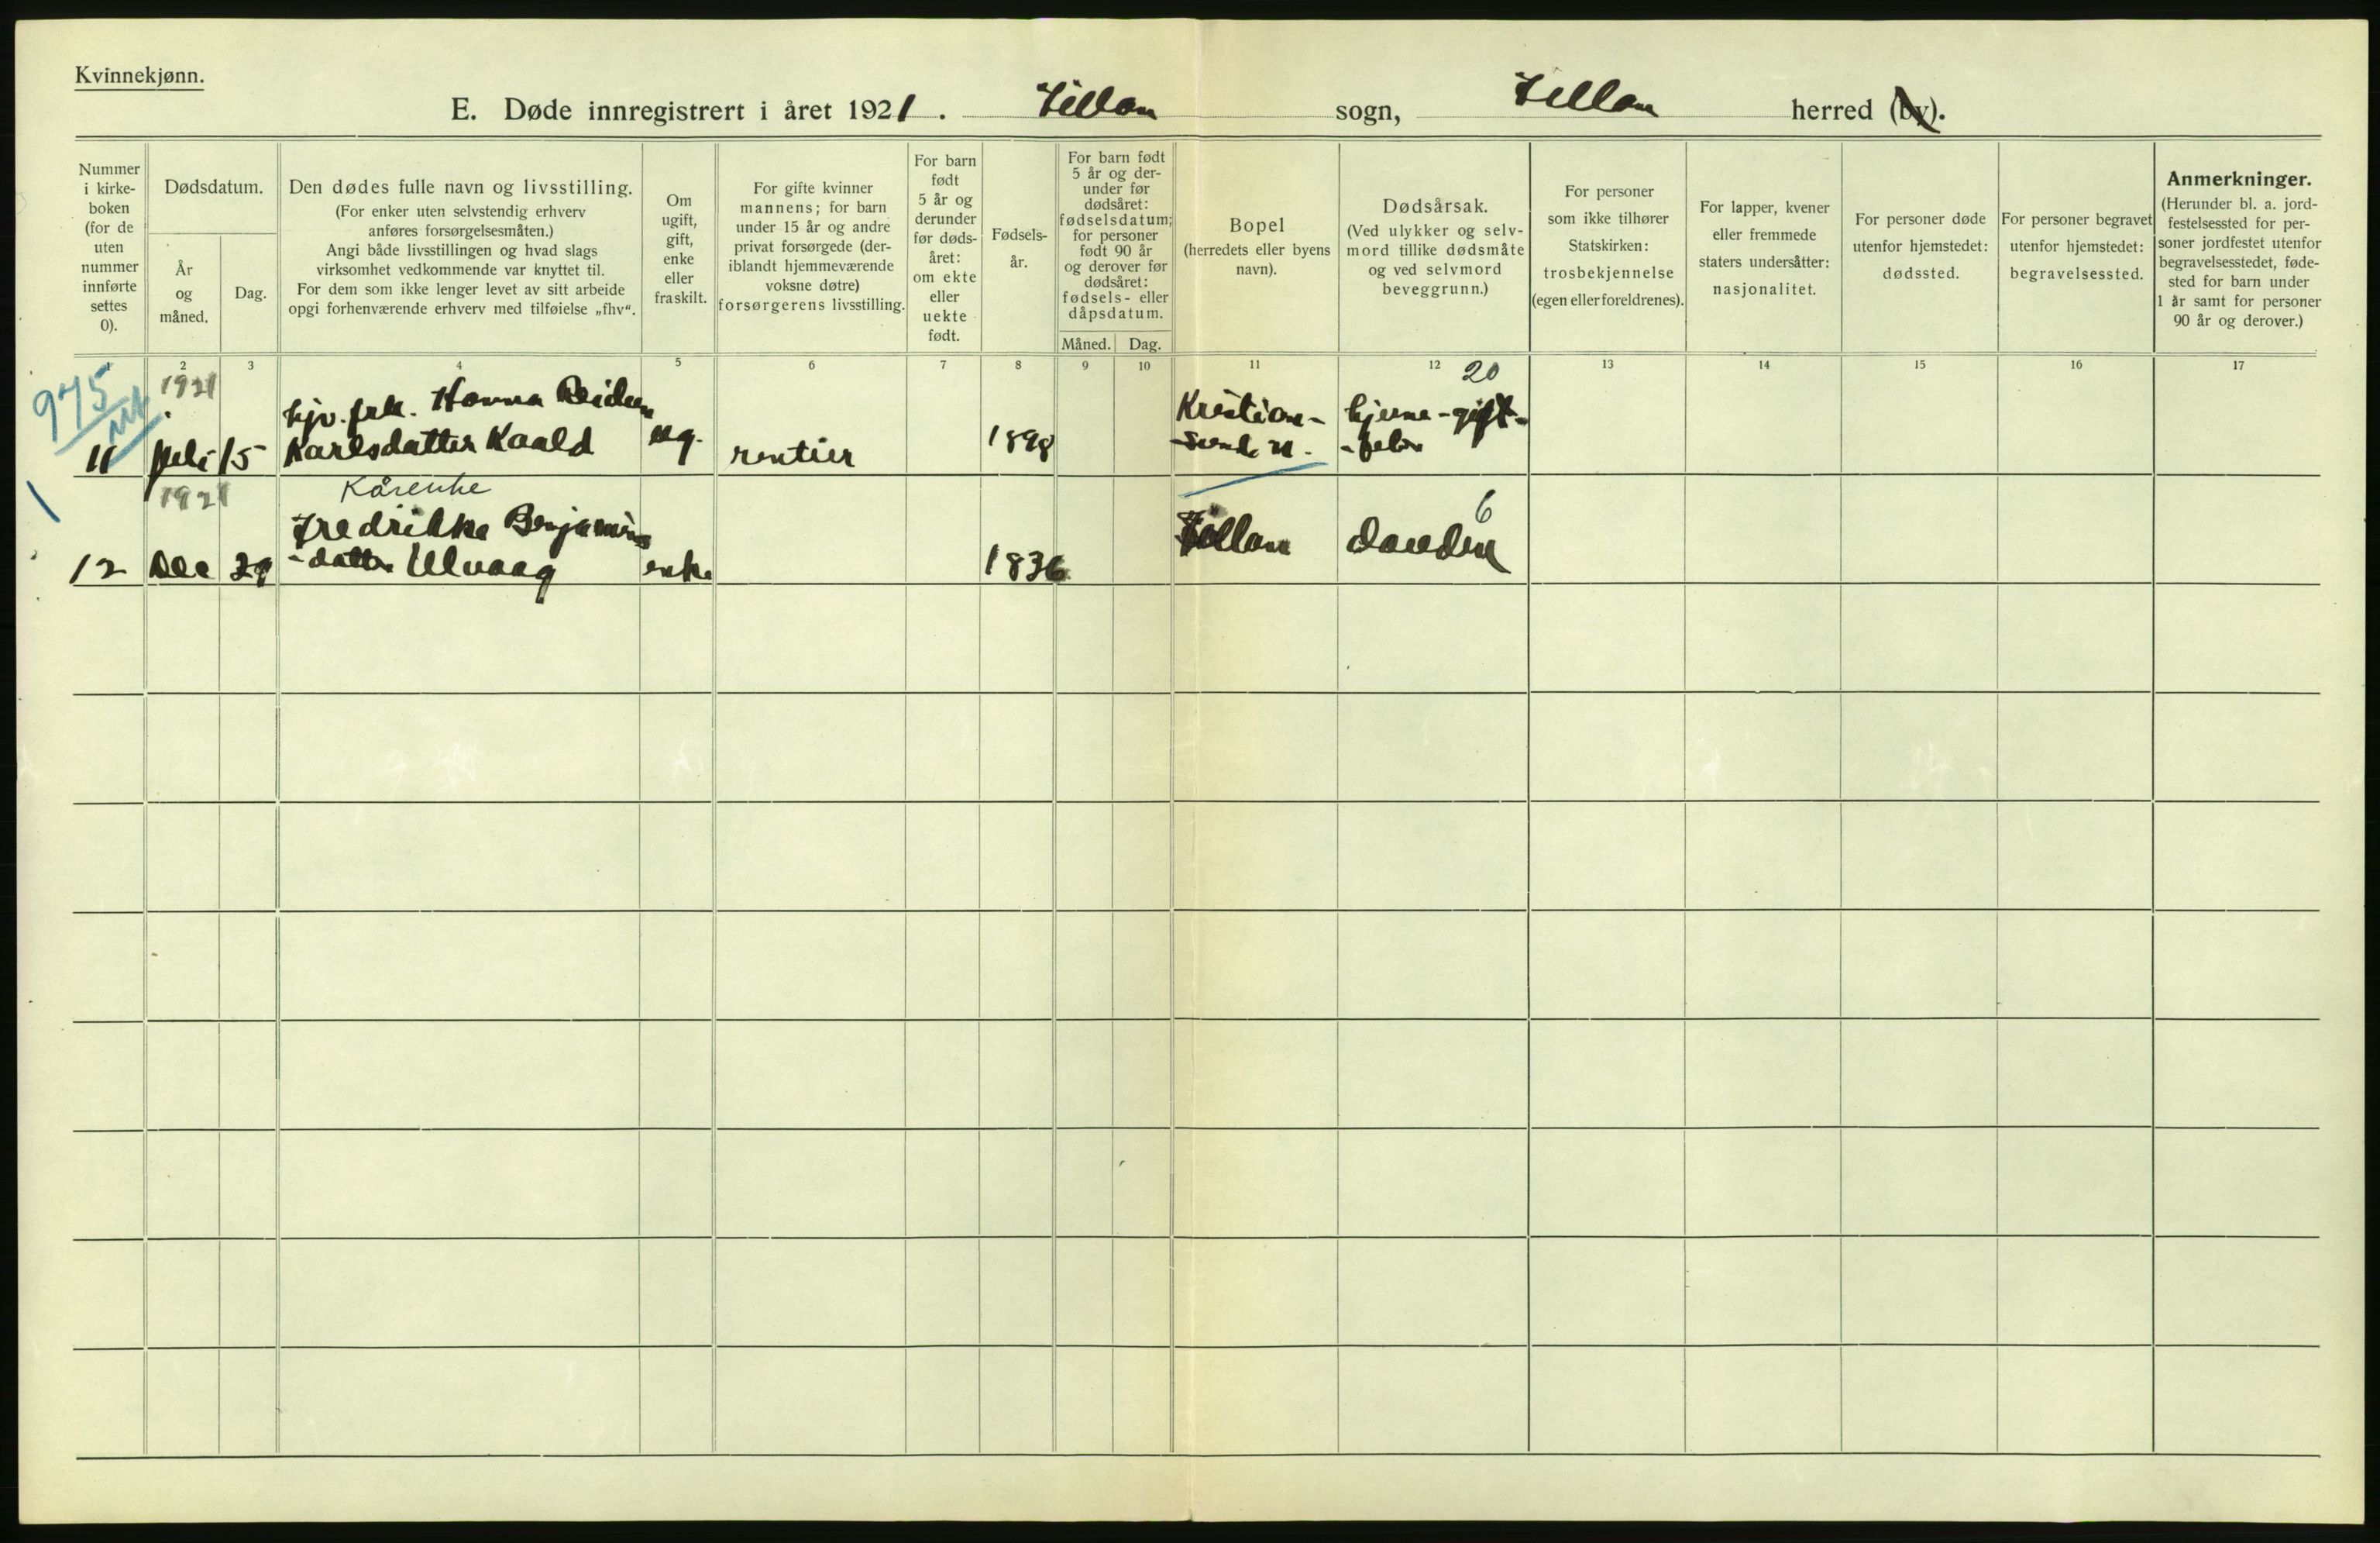 Kvinnekjønn.
E. Døde innregistrert i året 1921. Fillan sogn, Fillan herred (by).
Nummer
i kirke-
boken
(for de
uten
nummer
innførte
settes
0).
Dødsdatum.
År
og
måned.
Dag.
Den dødes fulle navn og livsstilling.
(For enker uten selvstendig erhverv
anføres forsørgelsesmåten.)
Angi både livsstillingen og hvad slags
virksomhet vedkommende var knyttet til.
For dem som ikke lenger levet av sitt arbeide
opgi forhenværende erhverv med tilføielse „fhv“.
Om
ugift,
gift,
enke
eller
fraskilt.
For gifte kvinner
mannens; for barn
under 15 år og andre
privat forsørgede (der-
iblandt hjemmeværende
voksne døtre)
forsørgerens livsstilling.
For barn
født
5 år og
derunder
før døds-
året:
om ekte
eller
uekte
født.
Fødsels-
år.
For barn født
5 år og der-
under før
dødsåret:
fødselsdatum;
for personer
født 90 år
og derover før
dødsåret:
fødsels- eller
dåpsdatum.
Måned. Dag.
Bopel
(herredets eller byens
navn).
Dødsårsak.
(Ved ulykker og selv-
mord tillike dødsmåte
og ved selvmord
beveggrunn.)
For personer
som ikke tilhører
Statskirken:
trosbekjennelse
(egen eller foreldrenes).
For lapper, kvener
eller fremmede
staters undersåtter:
nasjonalitet.
For personer døde
utenfor hjemstedet:
dødssted.
For personer begravet
utenfor hjemstedet:
begravelsessted.
Anmerkninger.
(Herunder bl. a. jord-
festelsessted for per-
soner jordfestet utenfor
begravelsesstedet, føde-
sted for barn under
1 år samt for personer
90 år og derover.)
1 2 3 4 5 6 7 8 9 10 11 12 13 14 15 16 17
975
1921
11 juli 15
hjv. frk. Hanna
Karlsdatter Kaald
ug.
rentier
1898
Kristian-
-sund. N.
20
hjerne-gift-
-feber
1921
12 Dec 29
Kårenke
Fredrikke Benjamins
-datter Ulvaag
enke
1836
Fillan
6